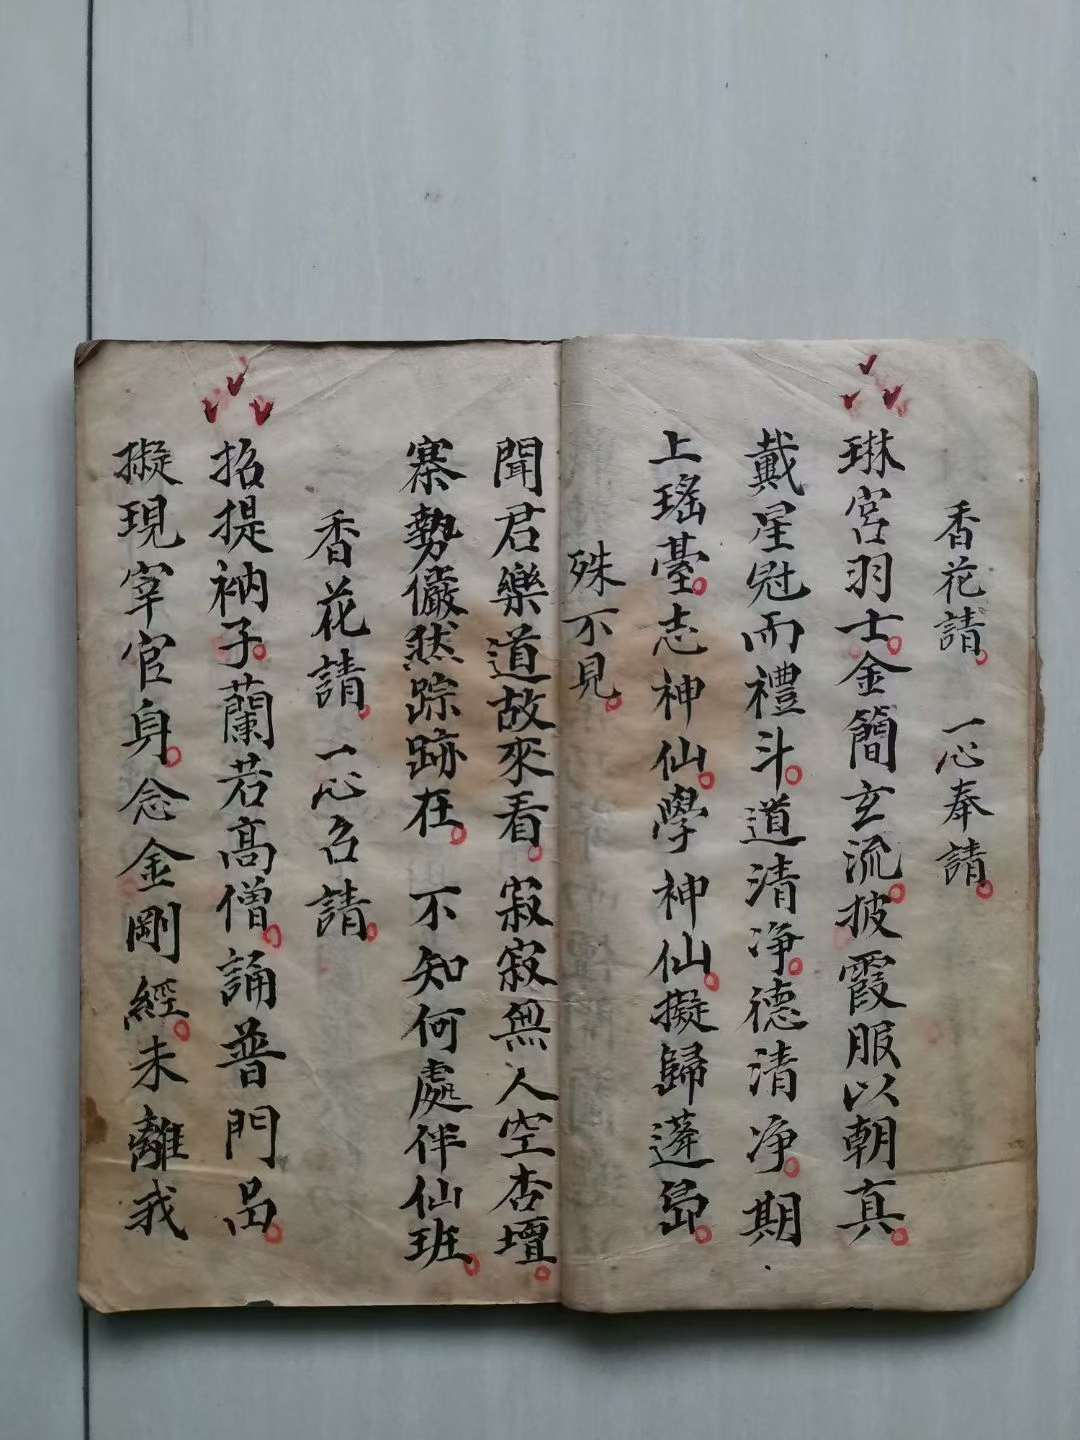 香花請。一心奉請。
琳宮羽士。金簡玄流。披霞服以朝真。
戴星冠而禮斗。道清淨。德清淨。期
上瑤臺。志神仙。學神仙。擬歸蓬島。
殊不見。
聞君樂道故來看。寂寂無人空杏壇。
寨勢儼然踪跡在。不知何處伴仙班。
香花請。一心召請。
招提衲子。蘭若高僧。誦普門品。
擬現宰官身。念金剛經。未離我